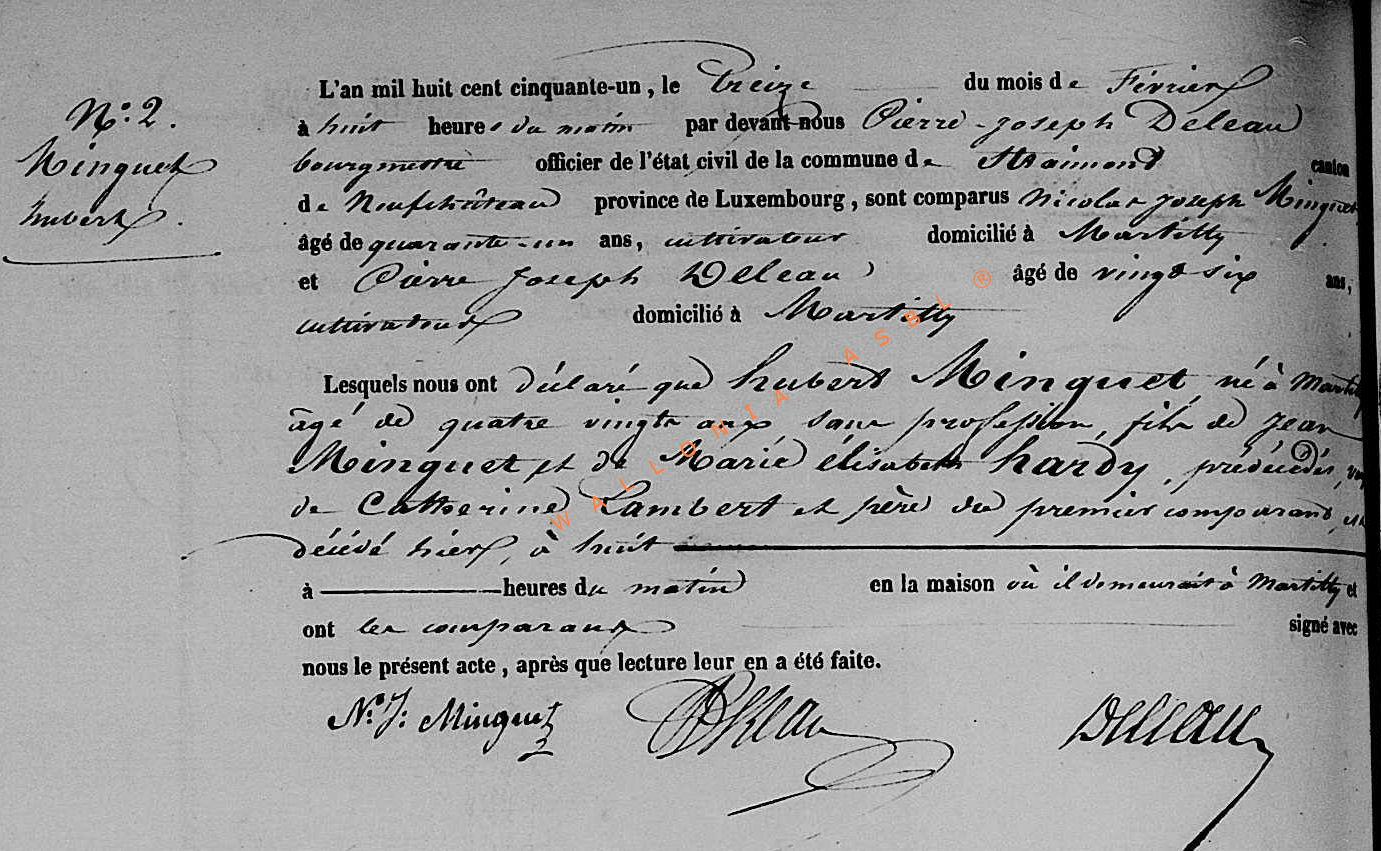 N.º 2.
Minquet
hubert.
L'an mil huit cent cinquante-un, le Treize du mois de Février
à huit heures du matin par devant nous Pierre-Joseph Deleau
bourgmestre officier de l'état civil de la commune de Straimont canton
de Neufchâteau province de Luxembourg, sont comparus Nicolas Joseph Minquet
âgé de quarante-un ans, cultivateur domicilié à Martilly
et Pierre Joseph Deleau âgé de vingt-six ans,
cultivateur domicilié à Martilly
Lesquels nous ont déclaré que hubert Minquet né à Martilly
âgé de quatre vingts ans sans profession, fils de Jean
Minquet et de Marie élisabeth hardy, prédécédés,
de Catherine Lambert et père du premier comparant, est
décédé hier, à huit
à heures du matin en la maison où il demeurait à Martilly et
ont les comparans signé avec
nous le présent acte, après que lecture leur en a été faite.
N. J: Minquet Deleau
WALLONIA ASBL ®